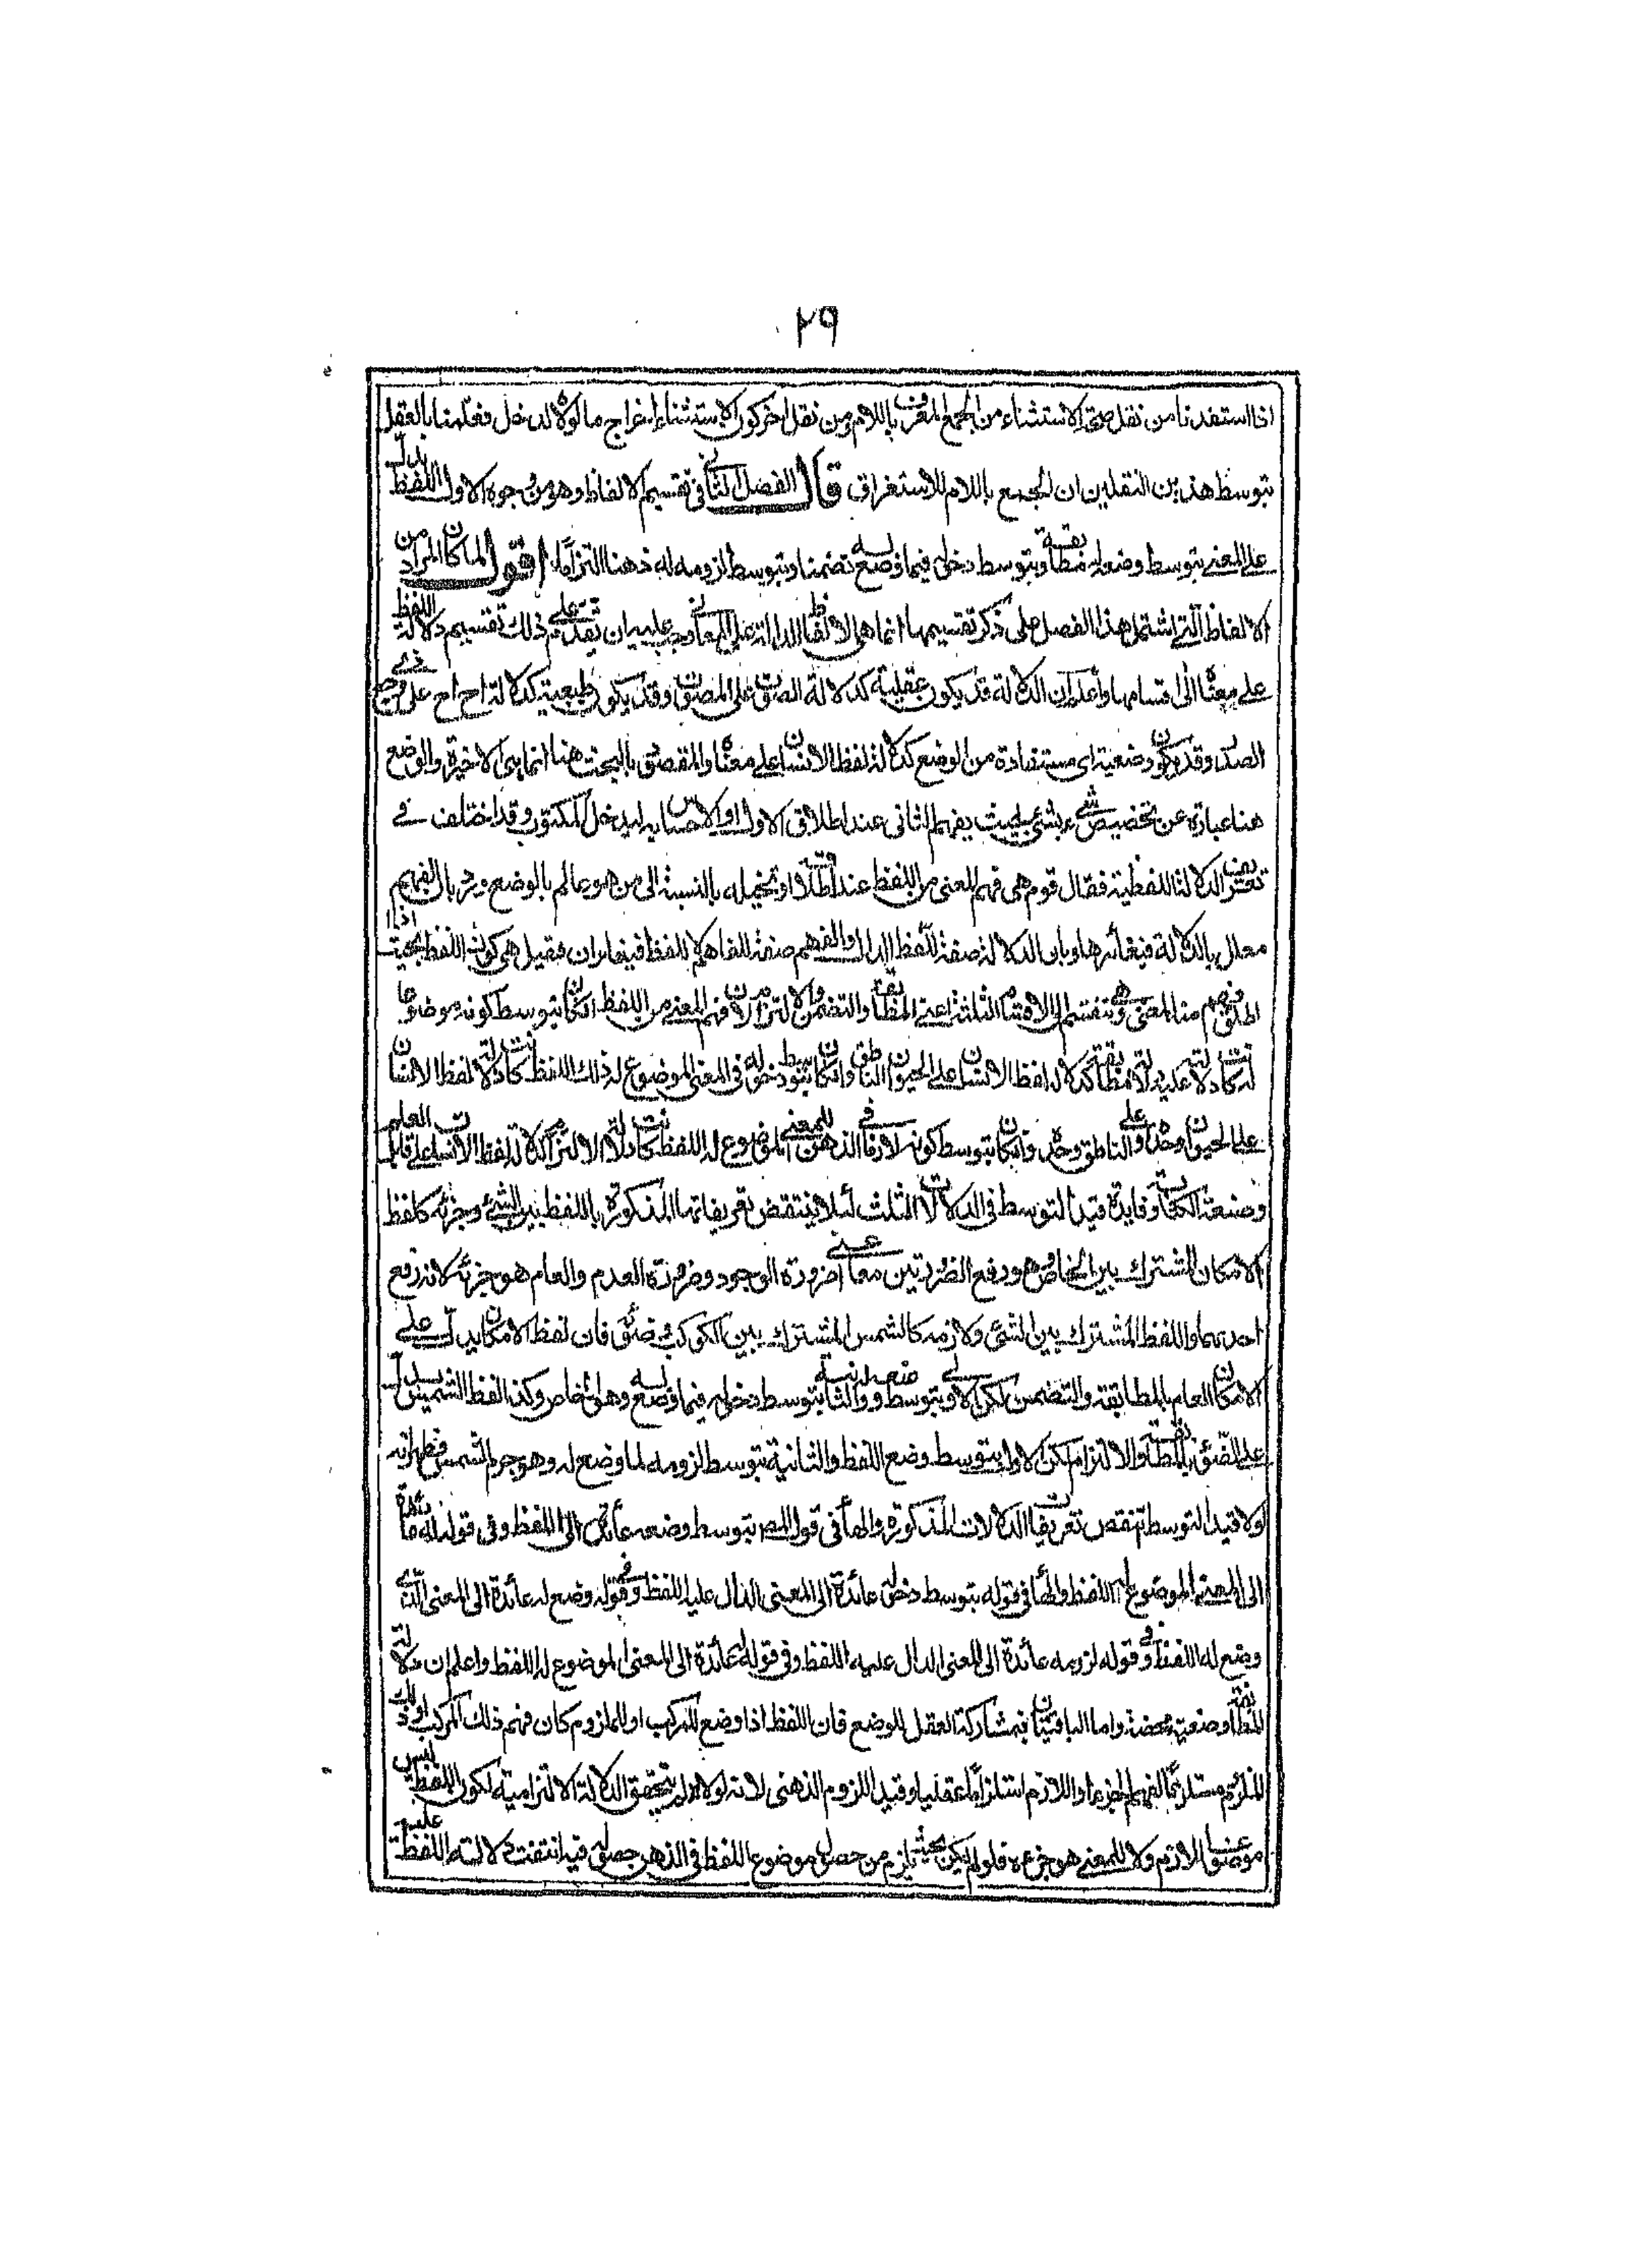 ٢٩
اذا استفدنا من نقل صحة الاستثناء من الجمع المعرف باللام ومن نقل اخر كون الاستثناء اخراج ما لولاه لدخل فعلمنا بالعقل
بتوسط هذين النقلين ان الجمع باللام للاستغراق قال الفصل الثاني في تقسيم الالفاظ وهو من وجوه الاول اللفظ يدل
على المعنى بتوسط وضعه له مطابقة وبتوسط دخوله فيما وضع له تضمنا وبتوسط لزومه له ذهنا التزاما اقول لما كان المراد من
الالفاظ التي اشتمل هذا الفصل على ذكر تقسيمها انما هي الالفاظ الدالة على المعاني وجب عليه ان يقدم على ذلك تقسيم دلالة اللفظ
على معناه الى اقسامها واعلم ان الدلالة قد يكون عقلية كدلالة الصوت على المصوت وقد يكون طبيعية كدلالة اح اح على وجع
الصدر وقد يكون وضعية اى مستفادة من الوضع كدلالة لفظ الانسان على معناه والمقصود بالبحث هنا انما هي الاخيرة والوضع
هنا عبارة عن تخصيص شئ بشئ بحيث يفهم الثاني عند اطلاق الاول او الاحساس به ليدخل المكتوب وقد اختلف في
تعريف الدلالة اللفظية فقال قوم هي فهم المعنى من اللفظ عند اطلاقه او تخيله بالنسبة الى من هو عالم بالوضع ورد بان الفهم
معلل بالدلالة فيغايرها وبان الدلالة صفة للفظ الدال والفهم صفة للفاهم لا للفظ فيتغايران فقيل هي كون اللفظ بحيث اذا
اطلق فهم منه المعنى وهي تنقسم الى الاقسام الثلثة اعنى المطابقة والتضمن والالتزام لان فهم المعنى من اللفظ ان كان بتوسط كونه موضوعا
له كانت دلالته عليه دلالة مطابقة كدلالة لفظ الانسان على الحيوان الناطق وان كان بتوسط دخوله في المعنى الموضوع له ذلك اللفظ كانت دلالة لفظ الانسان
على الحيوان وحده او على الناطق وحده وان كان بتوسط كونه لازما في الذهن للمعنى الموضوع له اللفظ كانت دلالة الالتزام كدلالة لفظ الانسان على قابل العلم
وصنعة الكتابة وفايدة قيد التوسط في الدلالات الثلث لئلا ينتقض تعريفاتها المذكورة باللفظ بين الشئ وجزئه كلفظ
الامكان المشترك بين الخاص وهو رفع الضرورتين معا اعنى ضرورة الوجود وضرورة العدم والعام هو جزئه لانه رفع
احدهما واللفظ المشترك بين الشئ ولازمه كالشمس المشترك بين الكوكب وضوئه فان لفظ الامكان يدل على
الامكان العام بالمطابقة والتضمن لكن الاولى بتوسط وضعه له والثانية بتوسط دخوله فيما وضع له وهو الخاص وكذا لفظ الشمس يدل
على الضوء بالمطابقة والالتزام لكن الاولى بتوسط وضع اللفظ والثانية بتوسط لزومه لما وضع له وهو جرم الشمس فظهر انه
لولا قيد التوسط لانتقض تعريفات الدلالات المذكورة والهاء في قول المصـ بتوسط وضعه عائدة الى اللفظ وفي قوله له عائدة
الى المعنى الموضوع له اللفظ والهاء في قوله بتوسط دخوله عائدة الى المعنى الدال عليه اللفظ وفي قوله وضع له عائدة الى المعنى الذي
وضع له اللفظ وفي قوله لزومه عائدة الى المعنى الدال عليه اللفظ وفي قوله له عائدة الى المعنى الموضوع له اللفظ واعلم ان دلالة
المطابقة وضعية محضة واما الباقيتان فبمشاركة العقل للوضع فان اللفظ اذا وضع للمركب او للملزوم كان فهم ذلك المركب او ذلك
الملزوم مستلزما لفهم الجزء او اللازم استلزاما عقليا وقيد اللزوم الذهني لانه لولاه لم يتحقق الدلالة الالتزامية لكون اللفظ ليس
موضوعا للازم ولا للمعنى هو جزءه فلو لم يكن بحيث يلزم من حصول موضوع اللفظ في الذهن حصوله فيه انتفت دلالته اللفظ عليه